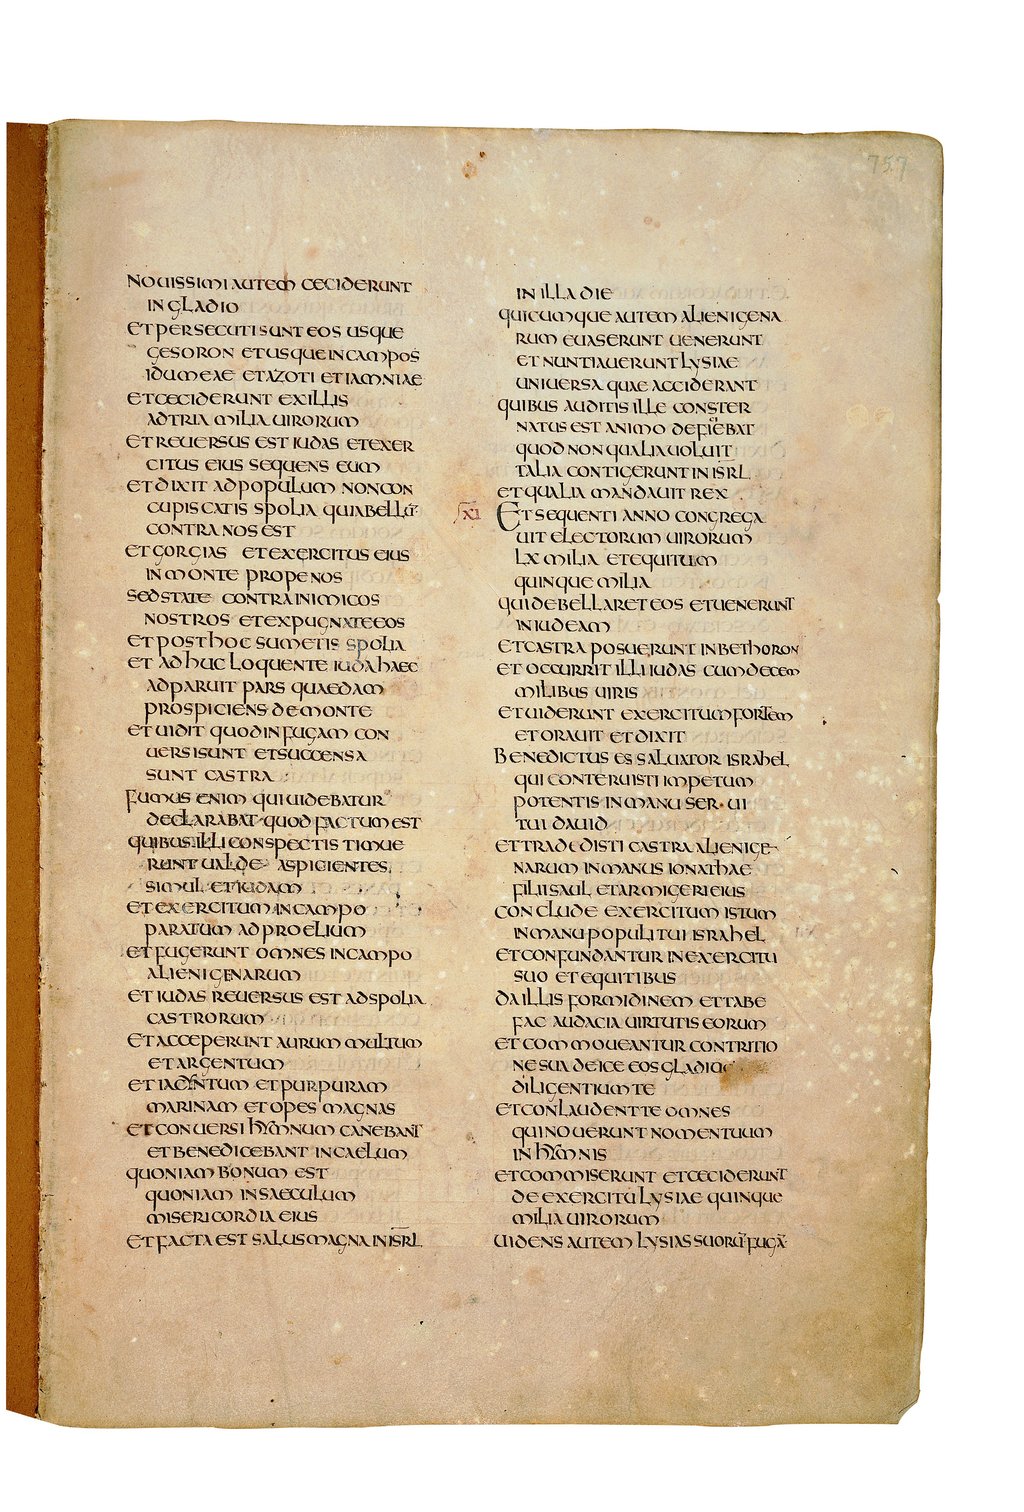 757
NOUISSIMI AUTEM CECIDERUNT
IN GLADIO
ET PERSECUTI SUNT EOS USQUE
GESORON ET USQUE IN CAMPOS
IDUMEAE ET AZOTI ET IAMNIAE
ET CECIDERUNT EX ILLIS
AD TRIA MILIA UIRORUM
ET REUERSUS EST IUDAS ET EXER
CITUS EIUS SEQUENS EUM
ET DIXIT AD POPULUM NON CON
CUPISCATIS SPOLIA QUIA BELLŪ
CONTRA NOS EST
ET GORGIAS ET EXERCITUS EIUS
IN MONTE PROPE NOS
SED STATE CONTRA INIMICOS
NOSTROS ET EXPUGNATE EOS
ET POST HOC SUMETIS SPOLIA
ET ADHUC LOQUENTE IUDA HAEC
ADPARUIT PARS QUAEDAM
PROSPICIENS DE MONTE
ET UIDIT QUOD IN FUGAM CON
UERSI SUNT ET SUCCENSA
SUNT CASTRA
FUMUS ENIM QUI UIDEBATUR
DECLARABAT QUOD FACTUM EST
QUIBUS ILLI CONSPECTIS TIMUE
RUNT UALDE ASPICIENTES
SIMUL ET IUDAM
ET EXERCITUM IN CAMPO
PARATUM AD PROELIUM
ET FUGERUNT OMNES IN CAMPO
ALIENIGENARUM
ET IUDAS REUERSUS EST AD SPOLIA
CASTRORUM
ET ACCEPERUNT AURUM MULTUM
ET ARGENTUM
ET IACINTUM ET PURPURAM
MARINAM ET OPES MAGNAS
ET CONUERSI HYMNUM CANEBANT
ET BENEDICEBANT IN CAELUM
QUONIAM BONUM EST
QUONIAM IN SAECULUM
MISERICORDIA EIUS
ET FACTA EST SALUS MAGNA IN ISRL
IN ILLA DIE
QUICUMQUE AUTEM ALIENIGENA
RUM EUASERUNT UENERUNT
ET NUNTIAUERUNT LYSIAE
UNIUERSA QUAE ACCIDERANT
QUIBUS AUDITIS ILLE CONSTER
NATUS EST ANIMO DEFICIEBAT
QUOD NON QUALIA UOLUIT
TALIA CONTIGERUNT IN ISRL
ET QUALIA MANDAUIT REX
XI ET SEQUENTI ANNO CONGREGA
UIT ELECTORUM UIRORUM
LX MILIA ET EQUITUM
QUINQUE MILIA
QUI DEBELLARET EOS ET UENERUNT
IN IUDEAM
ET CASTRA POSUERUNT IN BETHORON
ET OCCURRIT ILLI IUDAS CUM DECEM
MILIBUS UIRIS
ET UIDERUNT EXERCITUM FORTEM
ET ORAUIT ET DIXIT
BENEDICTUS ES SALUATOR ISRAHEL
QUI CONTERUISTI IMPETUM
POTENTIS IN MANU SER UI
TUI DAUID
ET TRADEDISTI CASTRA ALIENIGE
NARUM IN MANUS IONATHAE
FILII SAUL ET ARMIGERI EIUS
CONCLUDE EXERCITUM ISTUM
IN MANU POPULI TUI ISRAHEL
ET CONFUNDANTUR IN EXERCITU
SUO ET EQUITIBUS
DA ILLIS FORMIDINEM ET TABE
FAC AUDACIA UIRTUTIS EORUM
ET COMMOUEANTUR CONTRITIO
NE SUA DEICE EOS GLADIO
DILIGENTIUM TE
ET CONLAUDENT TE OMNES
QUI NOUERUNT NOMEN TUUM
IN HYMNIS
ET COMMISERUNT ET CECIDERUNT
DE EXERCITU LYSIAE QUINQUE
MILIA UIRORUM
UIDENS AUTEM LYSIAS SUORŪ FUGĀ